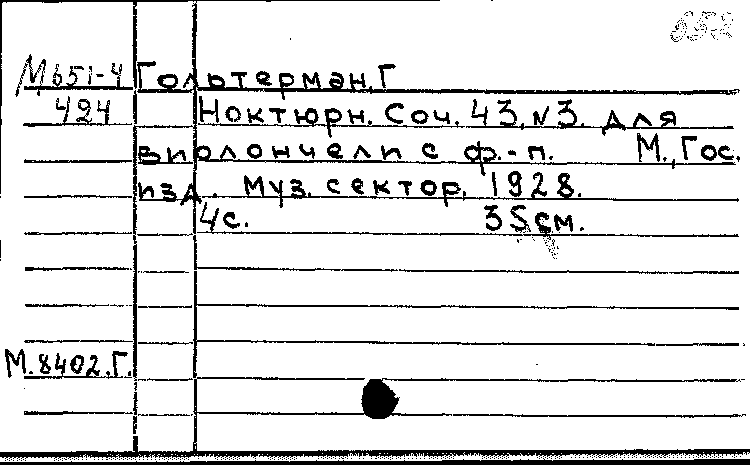 652
М651-4 Гольтерман, Г
424 Ноктюрн. Соч. 43, N3. для
виолончели с ф.-п. М., Гос.
изд. Муз. сектор, 1928.
4с. 35см.
М.8402.Г.